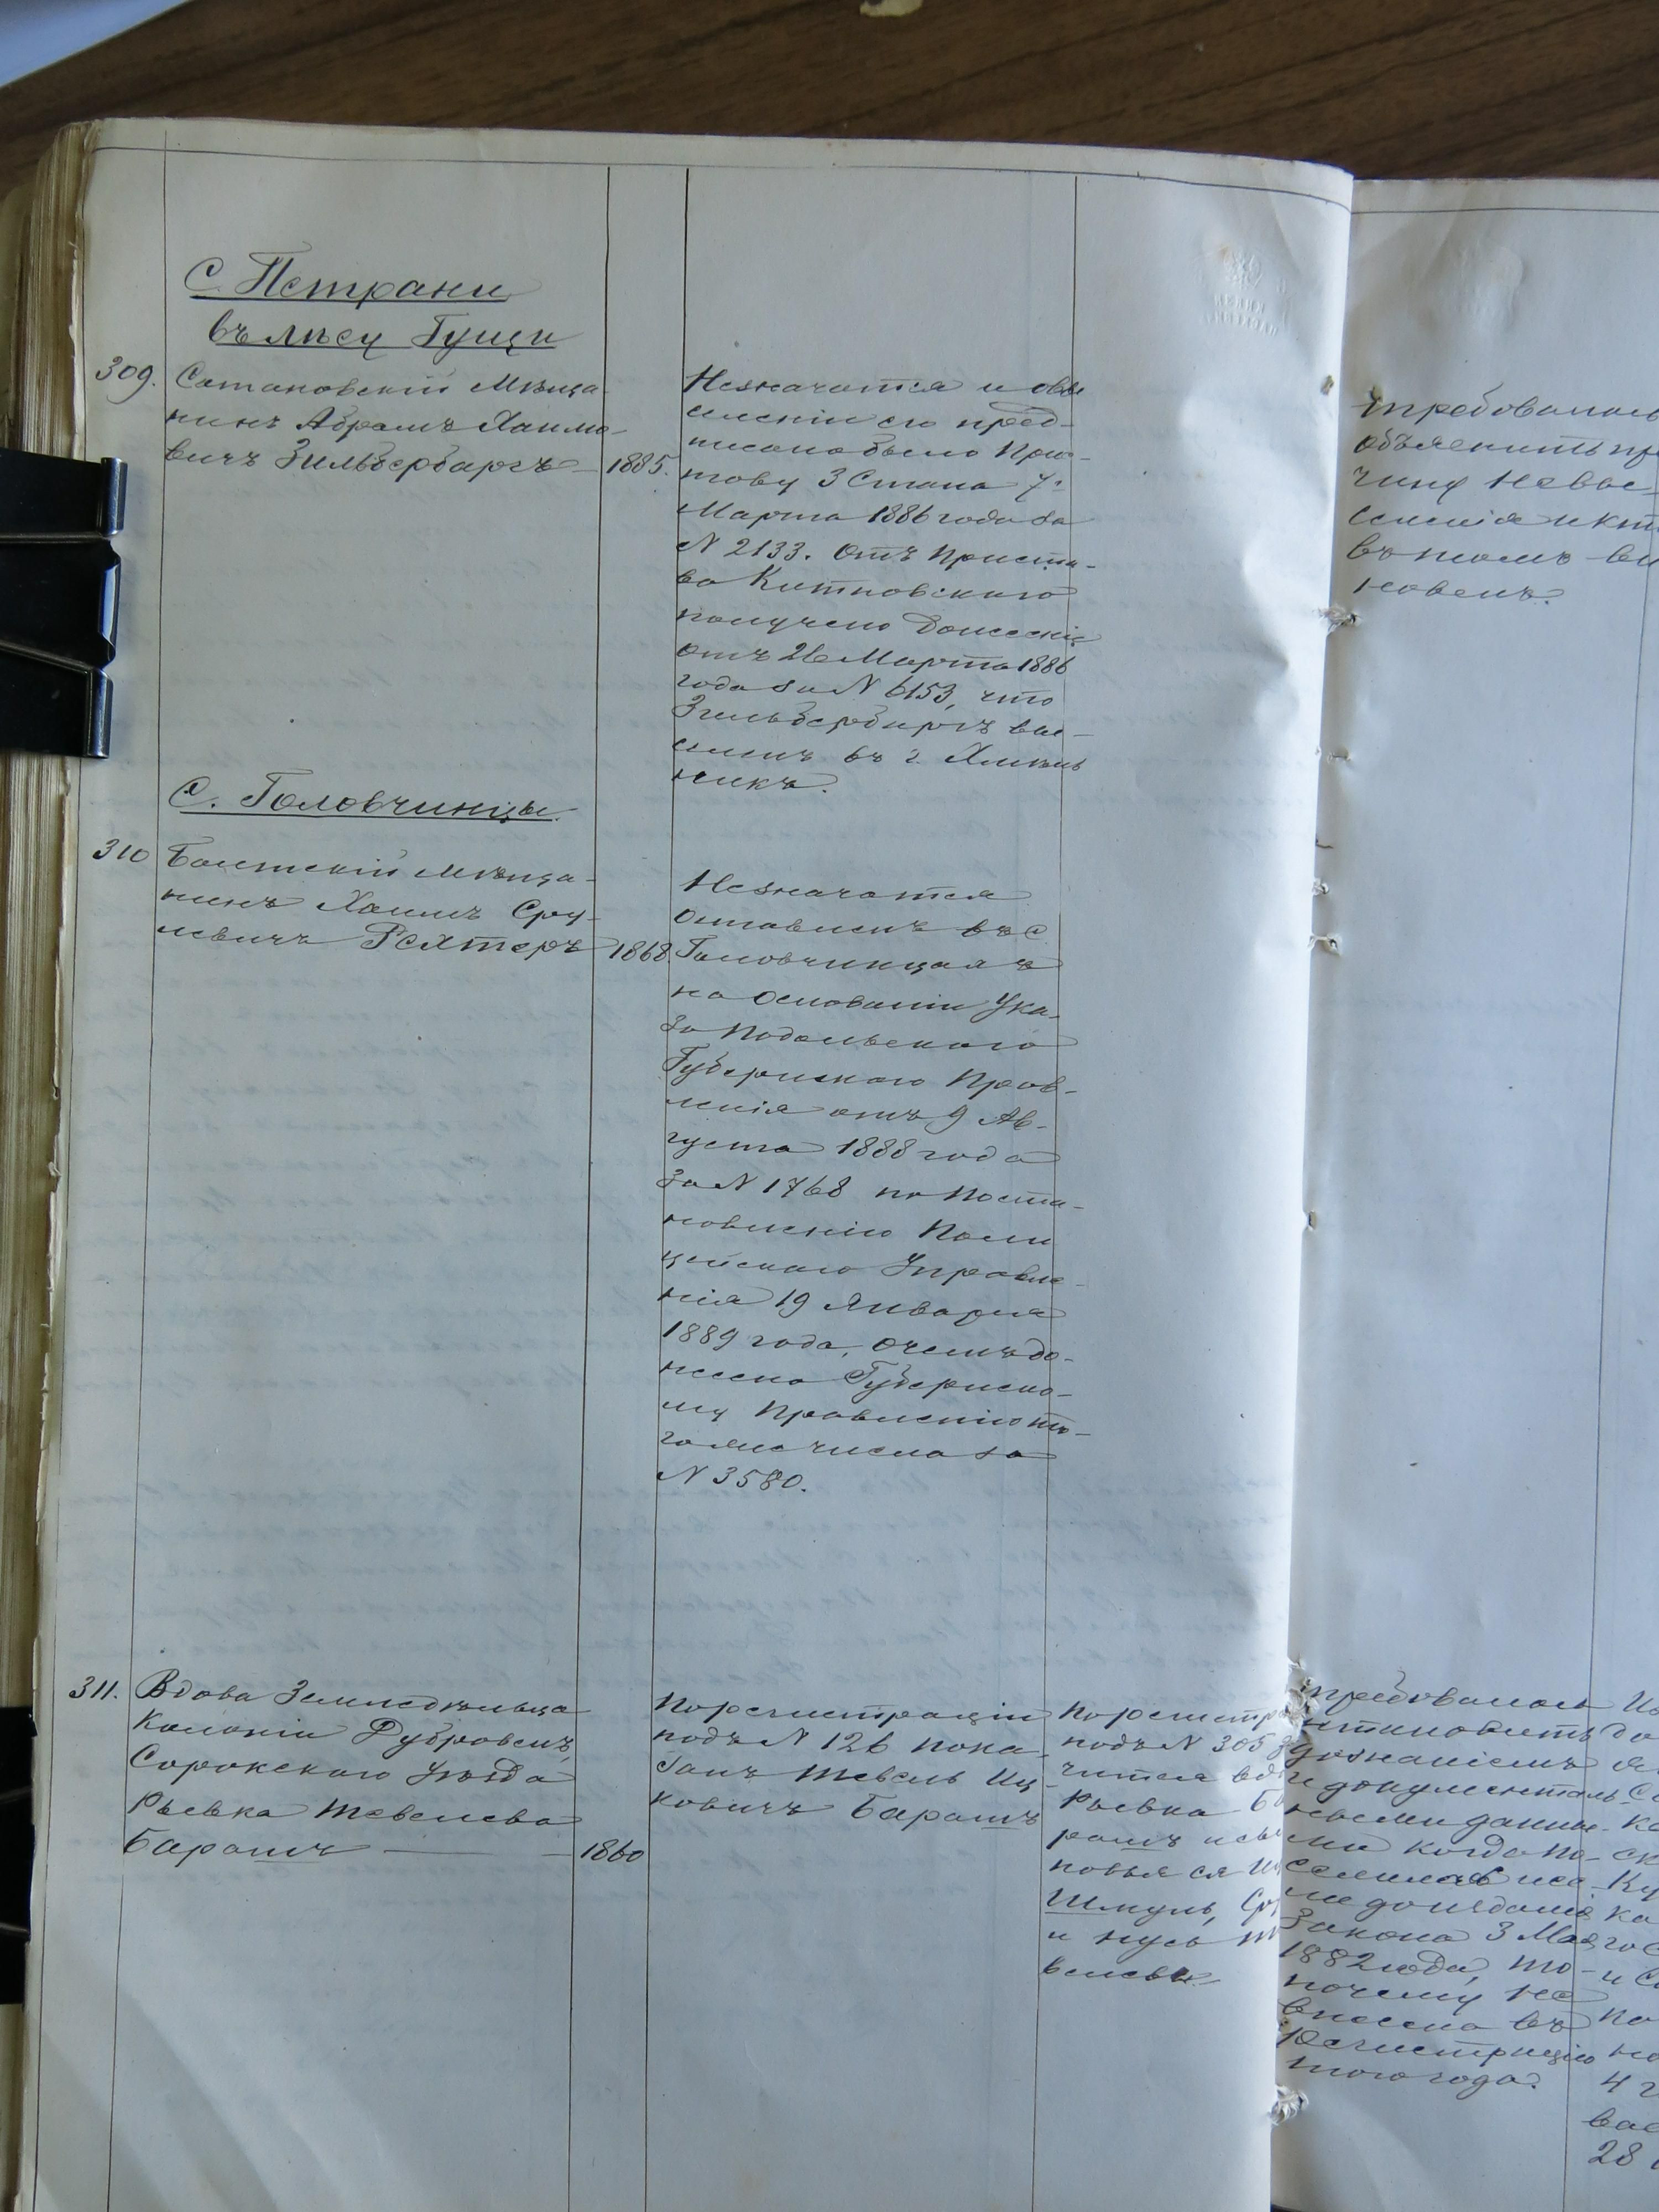 С. Петрани
въ лѣсу Гущи
309. Сатановскій Мѣща-
нинъ Абрамъ Хаимо-
вичъ Зильбербаргъ – 1885.
Незначатся и овы
селеніи его пред-
писано было При-
тову 3 Стана 7-
Марта 1886 года за
N 2133. Отъ Приста-
ва Китновскаго
получено донесеніе
отъ 26 Марта 1886
года за N 6153, что
Зильбербаргъ вы-
селенъ въ г. Хмѣль
никъ.
требовалось
объяснить пр
чину невые-
селенія и кт
въ томъ ви
новенъ.
С. Головчинцы.
310 Балтскій мѣща-
нинъ Хаимъ Сру-
левичъ Рехтеръ 1868.
Незначатся
оставленъ въ С.
Головчинцахъ
на основаніи Ука-
за Подольскаго
Губернскаго Прав-
ленія отъ 9 Ав-
густа 1888 года
за N 1768 по Поста-
новленію Поли
цейскаго Управле-
нія 19 Января
1889 года, о чемъ до-
несено Губернско-
му Правленію то-
гоже числа за
N 3580.
311. Вдова Земледѣльца
Колоніи Дубровенъ,
Сорокскаго Уѣзда
Рывка Тевелева
Барашъ — – 1860
По регистраціи
подъ N 126 пока-
занъ Тевель Иц-
ковичъ Барашъ
По регистра
подъ N 305 з
чится вд
Рывка Б
рашъ и сы
новья ея И
Шмуль, Ср
и нусь Т
велевы
требовалось
дознаніемъ
и документаль-
ными данны-
ми когда по-
селилась и е
ли до изданія
Закона 3 Мая
1882 года, то-
почему не
внесена въ
Регистрацію
того года.
28